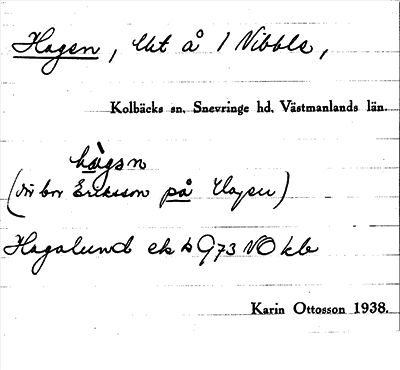 Hagen, lht å 1 Nibble,
Kolbäcks sn. Snevringe hd. Västmanlands län.
hàgən
(där bor Eriksson på Hagen)
Hagalund ek bl 973 NO kb
Karin Ottosson 1938.